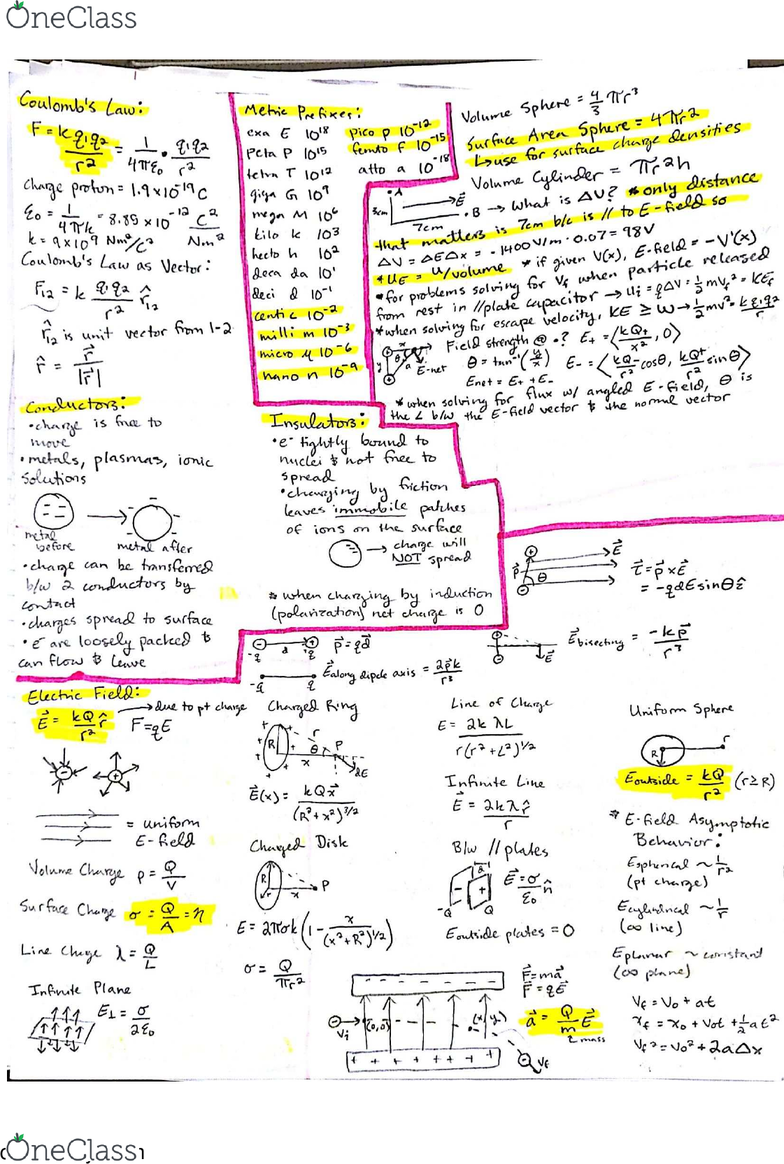 OneClass
Coulomb's Law:
F = k q₁q₂/r² = 1/4πε₀ · q₁q₂/r²
Charge proton = 1.9×10⁻¹⁹ C
ε₀ = 1/4πk = 8.85 × 10⁻¹² C²/Nm²
k = 9×10⁹ Nm²/C²
Coulomb's Law as Vector:
F₁₂ = k q₁q₂/r² r̂₁₂
r̂₁₂ is unit vector from 1-2
r̂ = r⃗/|r⃗|
Conductors:
• charge is free to
move
• metals, plasmas, ionic
solutions
metal
before
metal after
• charge can be transferred
b/w 2 conductors by
contact
• charges spread to surface
• e⁻ are loosely packed &
can flow & leave
Metric Prefixes:
exa E 10¹⁸
peta P 10¹⁵
tetra T 10¹²
giga G 10⁹
mega M 10⁶
kilo k 10³
hecto h 10²
deca da 10¹
deci d 10⁻¹
centi c 10⁻²
milli m 10⁻³
micro μ 10⁻⁶
nano n 10⁻⁹
pico p 10⁻¹²
femto f 10⁻¹⁵
atto a 10⁻¹⁸
Volume Sphere = 4/3 πr³
Surface Area Sphere = 4πr²
↳ use for surface charge densities
Volume Cylinder = πr²h
A
E⃗
3cm
7cm
B → what is ΔV? * only distance
that matters is 7cm b/c is // to E-field so
ΔV = ΔEΔx = -1400V/m · 0.07 = 98V
* u_E = U/volume * if given V(x), E-field = -V'(x)
* for problems solving for Vf when particle released
from rest in // plate capacitor → Ui = qΔV = ½mvf² = KEf
* when solving for escape velocity, KE ≥ W → ½mv² = kq₁q₂/r
Field strength @ •? E+ = ⟨kQ+/x², 0⟩
E-net
θ = tan⁻¹(y/x) E- = ⟨kQ-/r² cosθ, kQ+/r² sinθ⟩
Enet = E+ + E-
* when solving for flux w/ angled E-field, θ is
the ∠ b/w the E-field vector & the normal vector
Insulators:
• e⁻ tightly bound to
nuclei & not free to
spread
• charging by friction
leaves immobile patches
of ions on the surface
→ charge will
NOT spread
* when charging by induction
(polarization) net charge is 0
p⃗ = qd⃗
E⃗along dipole axis = 2p⃗k/r³
p⃗
θ
E⃗
τ⃗ = p⃗ × E⃗
= -qdEsinθ ẑ
E⃗
E⃗bisecting = -kp⃗/r³
Electric Field:
→ due to pt charge
E⃗ = kQ/r² r̂ F=qE
= uniform
E-field
Volume Charge ρ = Q/V
Surface Charge σ = Q/A = η
Line Charge λ = Q/L
Infinite Plane
E⊥ = σ/2ε₀
Charged Ring
R
r
θ
P
x
dE
E⃗(x) = kQx⃗/(R²+x²)^3/2
Charged Disk
R
x
P
E = 2πσk(1 - x/(x²+R²)^1/2)
σ = Q/πr²
Line of Charge
E = 2kλL/r(r²+L²)^1/2
Infinite Line
E⃗ = 2kλr̂/r
B/w // plates
d
-Q
Q
E⃗ = σ/ε₀ n̂
Eoutside plates = 0
Uniform Sphere
R
r
Eoutside = kQ/r² (r≥R)
* E-field Asymptotic
Behavior:
Espherical ~ 1/r²
(pt charge)
Ecylindrical ~ 1/r
(∞ line)
Eplanar ~ constant
(∞ plane)
Vi
(0,0)
(x, y)
Vf
F⃗ = ma⃗
F⃗ = qE⃗
a⃗ = Q/m E⃗
mass
Vf = V₀ + at
xf = x₀ + V₀t + ½at²
Vf² = V₀² + 2aΔx
OneClass